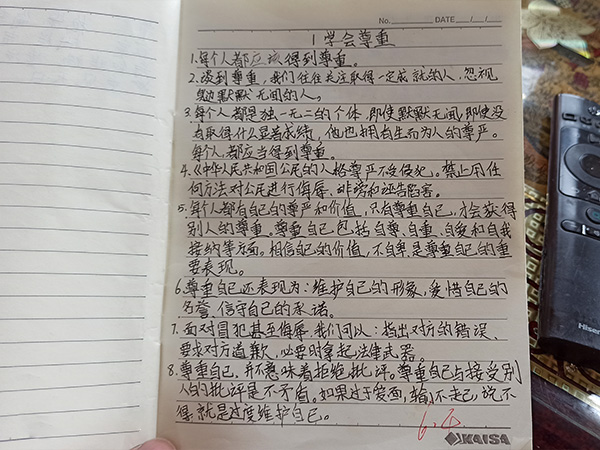 No. DATE / /
1 学会尊重
1.每个人都应该得到尊重。
2.谈到尊重,我们往往关注取得一定成就的人,忽视
默默无闻的人。
3.每个人都是独一无二的个体,即使默默无闻,即使没
有取得什么显著成绩,他也拥有生而为人的尊严。
每个人都应当得到尊重。
4.《中华人民共和国公民的人格尊严不受侵犯。禁止用任
何方法对公民进行侮辱、诽谤和诬告陷害。
5.每个人都有自己的尊严和价值,只有尊重自己,才会获得
别人的尊重。尊重自己包括自尊、自重、自爱和自我
接纳等方面。相信自己的价值,不自卑是尊重自己的重
要表现。
6.尊重自己还表现为:维护自己的形象,爱惜自己的
名誉,信守自己的承诺。
7.面对冒犯甚至侮辱,我们可以:指出对方的错误、
要求对方道歉,必要时拿起法律武器。
8.尊重自己,并不意味着拒绝批评。尊重自己与接受别
人的批评是不矛盾。如果过于爱面,输不起,说不
得,就是过度维护自己。
KAISA
Hisense